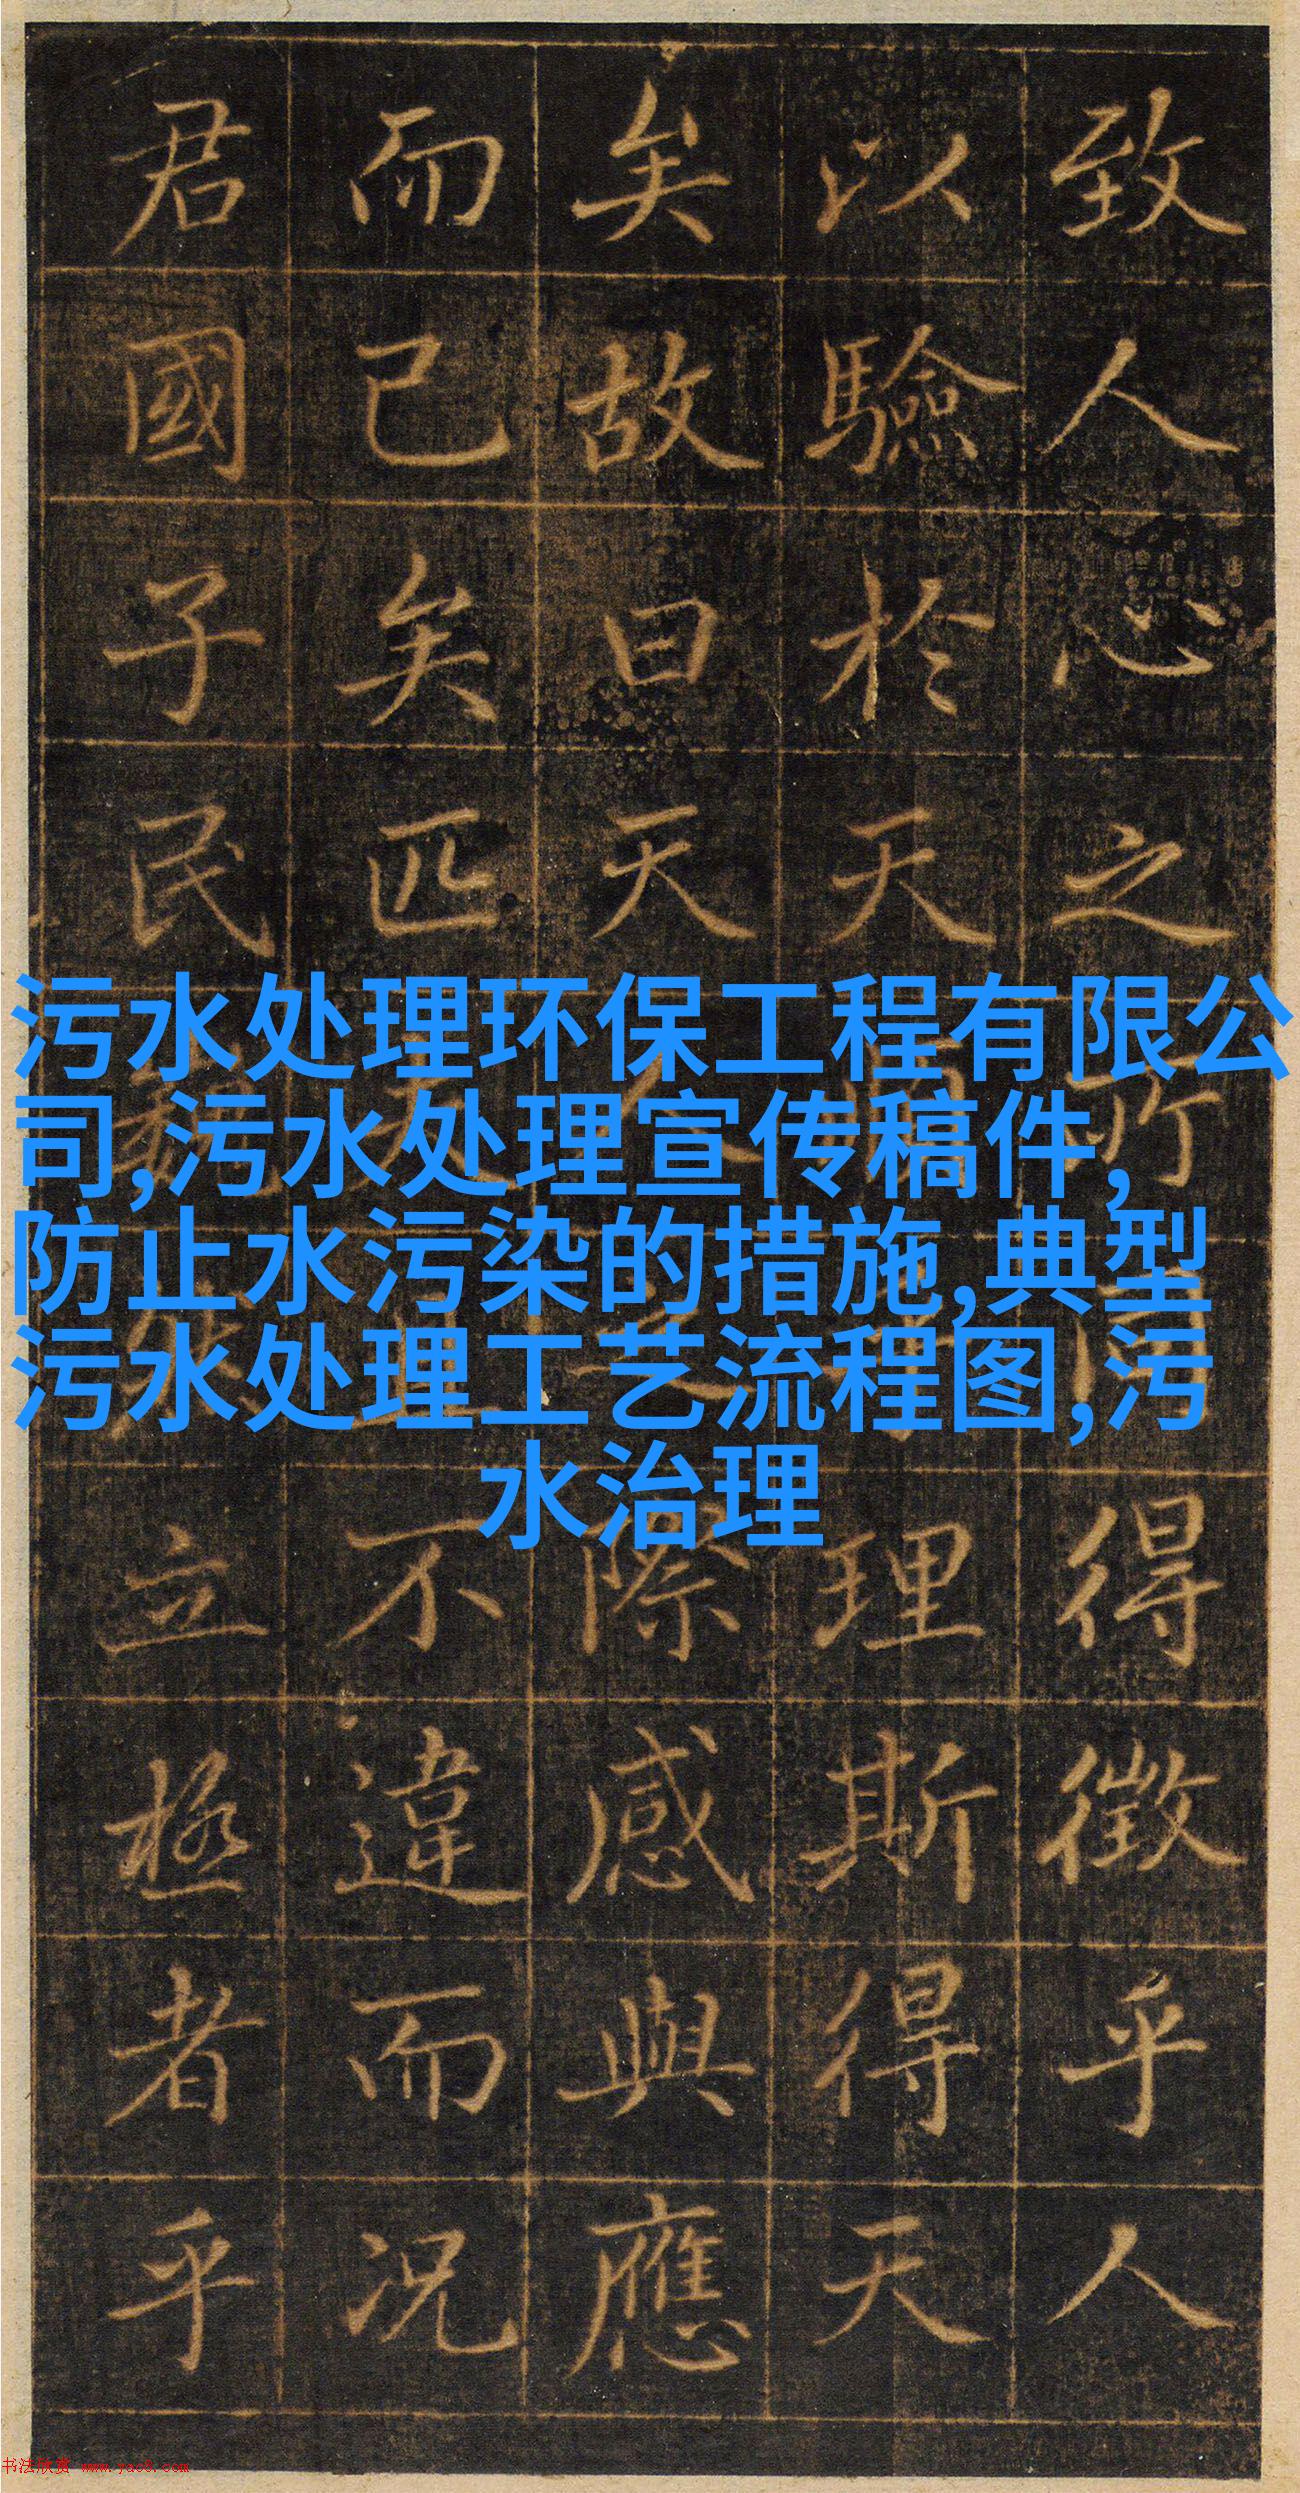 致人心之所得徵乎人
以驗於天理斯得天
矣故曰天人之際感與應
而已矣匹夫不違而況
君國子民立極者乎
污水处理环保工程有限公
司,污水处理宣传稿件,
防止水污染的措施,典型
污水处理工艺流程图,污
水治理
书法欣赏 www.yac8.com